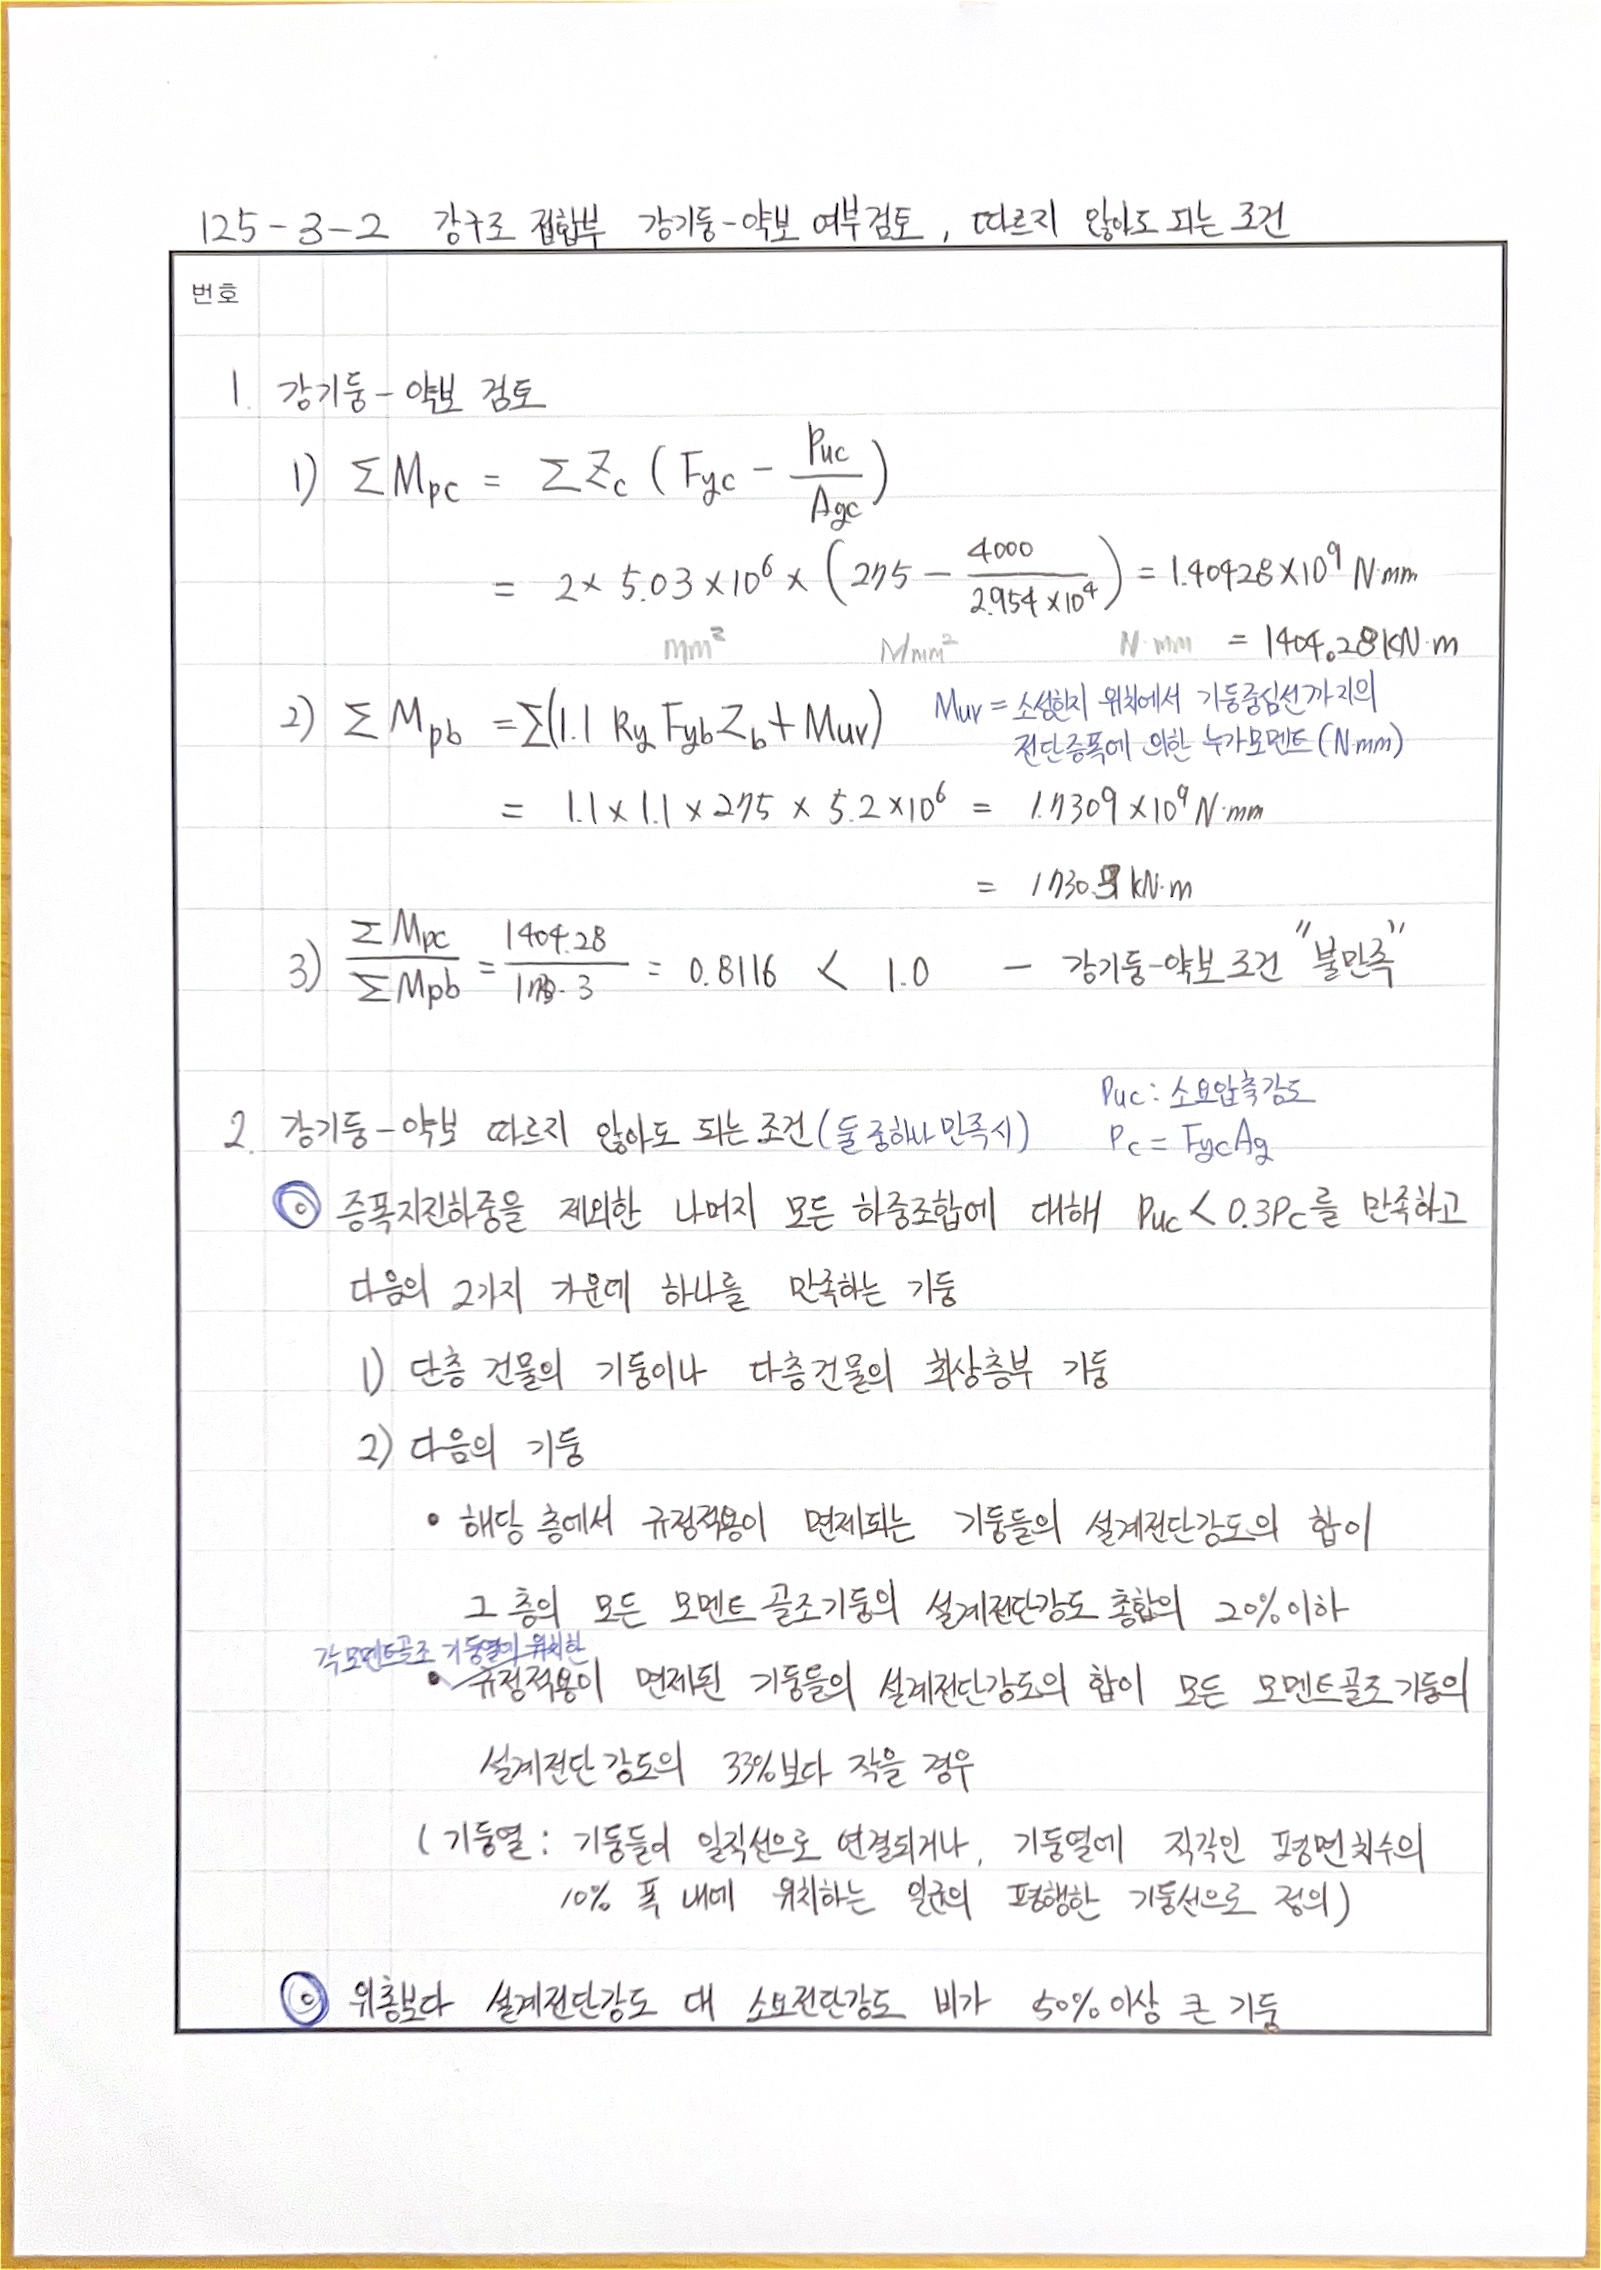 125-3-2 강구조 접합부 강기둥-약보 여부검토, 따르지 않아도 되는 조건
번호
1. 강기둥-약보 검토
1) ΣMpc = ΣZc (Fyc - Puc/Agc)
= 2 × 5.03 × 10⁶ × (275 - 4000/2.954×10⁴) = 1.40428×10⁹ N·mm
mm² N/mm² N·mm = 1404.28 kN·m
2) ΣMpb = Σ(1.1 Ry Fyb Zb + Muv) Muv = 소성힌지 위치에서 기둥중심선까지의
전단증폭에 의한 누가모멘트(N·mm)
= 1.1 × 1.1 × 275 × 5.2×10⁶ = 1.7309 ×10⁹ N·mm
= 1730.3 kN·m
3) ΣMpc/ΣMpb = 1404.28/1730.3 = 0.8116 < 1.0 - 강기둥-약보 조건 "불만족"
Puc : 소요압축강도
2. 강기둥-약보 따르지 않아도 되는 조건(둘 중 하나 만족시) Pc = FycAg
◎ 증폭지진하중을 제외한 나머지 모든 하중조합에 대해 Puc < 0.3Pc를 만족하고
다음의 2가지 가운데 하나를 만족하는 기둥
1) 단층 건물의 기둥이나 다층건물의 최상층부 기둥
2) 다음의 기둥
• 해당 층에서 규정적용이 면제되는 기둥들의 설계전단강도의 합이
그 층의 모든 모멘트 골조기둥의 설계전단강도 총합의 20%이하
각 모멘트골조 기둥열에 위치한
• 규정적용이 면제된 기둥들의 설계전단강도의 합이 모든 모멘트골조 기둥의
설계전단 강도의 33%보다 작을 경우
(기둥열 : 기둥들이 일직선으로 연결되거나, 기둥열에 직각인 평면치수의
10% 폭 내에 위치하는 일군의 평행한 기둥선으로 정의)
◎ 위층보다 설계전단강도 대 소요전단강도 비가 50%이상 큰 기둥